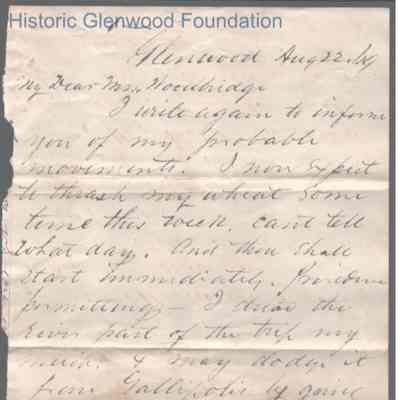 Historic Glenwood Foundation
Glenwood Aug 22. 69
My Dear Mrs. Woodbridge
I write again to inform
you of my probable
movements. I now expect
to thrash my wheat some
time this week, cant tell
what day. And then shall
start immediately. Providence
permitting - I dread the
River part of the trip very
much. & may dodge it
from Gallipolis by going